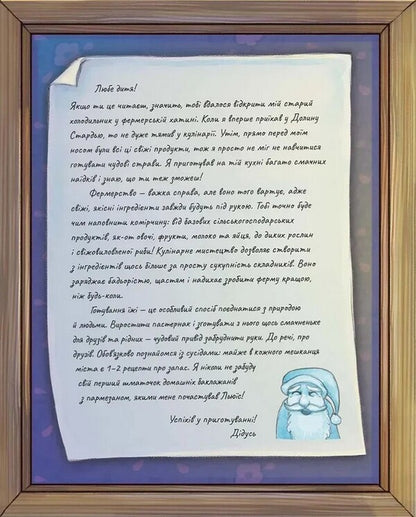 Любе дитя!
Якщо ти це читаєш, значить, тобі вдалося відкрити мій старий
холодильник у фермерській хатині. Коли я вперше приїхав у Долину
Стардью, то не дуже тямив у кулінарії. Утім, прямо перед моїм
носом були всі ці свіжі продукти, тож я просто не міг не навчитися
готувати чудові страви. Я приготував на тій кухні багато смачних
наїдків і знаю, що ти теж зможеш!
Фермерство — важка справа, але воно того вартує, адже
свіжі, якісні інгредієнти завжди будуть під рукою. Тобі точно буде
чим наповнити комірчину: від базових сільськогосподарських
продуктів, як-от овочі, фрукти, молоко та яйця, до диких рослин
і свіжовиловленої риби! Кулінарне мистецтво дозволяє створити
з інгредієнтів щось більше за просту сукупність складників. Воно
заряджає бадьорістю, щастям і надихає зробити ферму кращою,
ніж будь-коли.
Готування їжі — це особливий спосіб поєднатися з природою
й людьми. Виростити пастернак і зготувати з нього щось смачненьке
для друзів та рідних — чудовий привід забруднити руки. До речі, про
друзів. Обов'язково познайомся із сусідами: майже в кожного мешканця
міста є 1–2 рецепти про запас. Я ніколи не забуду
свій перший шматочок домашніх баклажанів
з пармезаном, якими мене почастував Льюїс!
Успіхів у приготуванні!
Дідусь